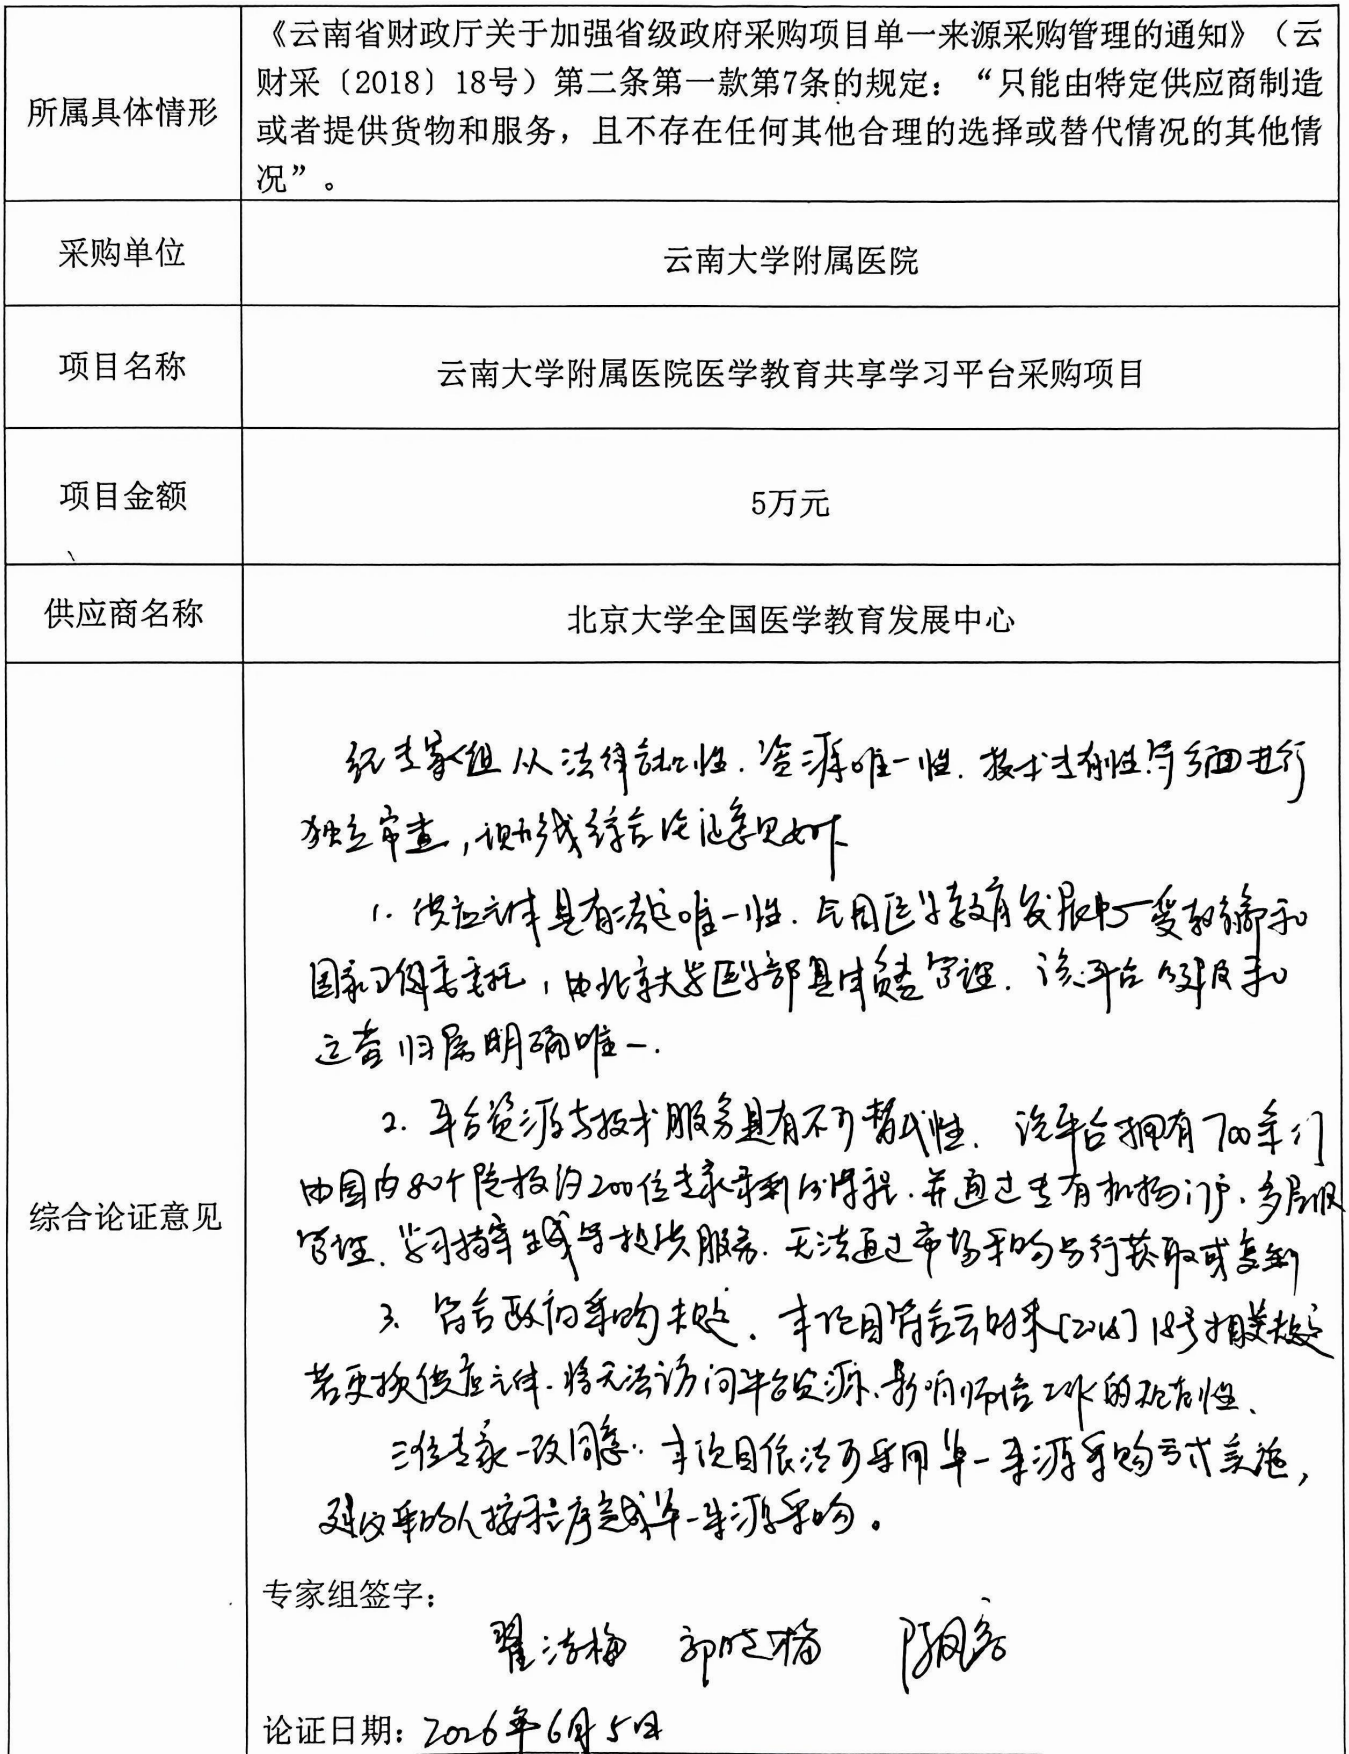 《云南省财政厅关于加强省级政府采购项目单一来源采购管理的通知》（云
财采〔2018〕18号）第二条第一款第7条的规定：“只能由特定供应商制造
或者提供货物和服务，且不存在任何其他合理的选择或替代情况的其他情
况”。
所属具体情形
采购单位
云南大学附属医院
项目名称
云南大学附属医院医学教育共享学习平台采购项目
项目金额
5万元
供应商名称
北京大学全国医学教育发展中心
综合论证意见
经专家组从法律合规性、资源唯一性、技术专有性等多方面进行
独立审查，现形成综合论证意见如下
1. 供应主体具有法定唯一性。全国医学教育发展中心受教育部和
国家卫健委委托，由北京大学医学部具体负责管理。该平台的研发和
运营归属明确唯一.
2. 平台资源与技术服务具有不可替代性。该平台拥有700余门
由国内80个院校约200位专家录制的课程，并通过专有机构门户、多层级
管理、学习档案生成等提供服务，无法通过市场采购另行获取或复制
3. 符合政府采购规定。本项目符合云财采[2018]18号相关规定
若更换供应主体，将无法访问平台资源，影响师培工作的
三位专家一致同意：本项目依法可采用单一来源采购方式实施，
建议采购人按程序完成单一来源采购。
专家组签字：
翟 梅 郭晓梅 陈凤
论证日期：2026年6月5日